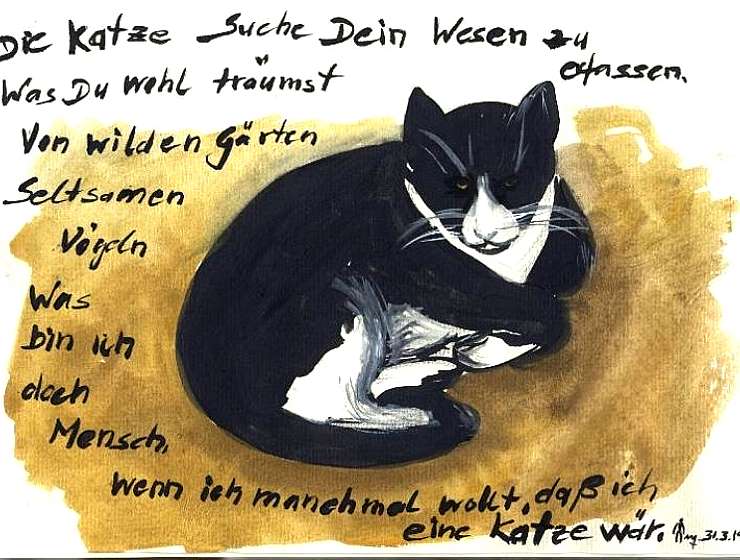 Die Katze Suche Dein Wesen zu
erfassen.
Was Du wohl träumst
Von wilden Gärten
Seltsamen
Vögeln
Was
bin ich
doch
Mensch,
wenn ich manchmal wollt, daß ich
eine Katze wär.
31.3.